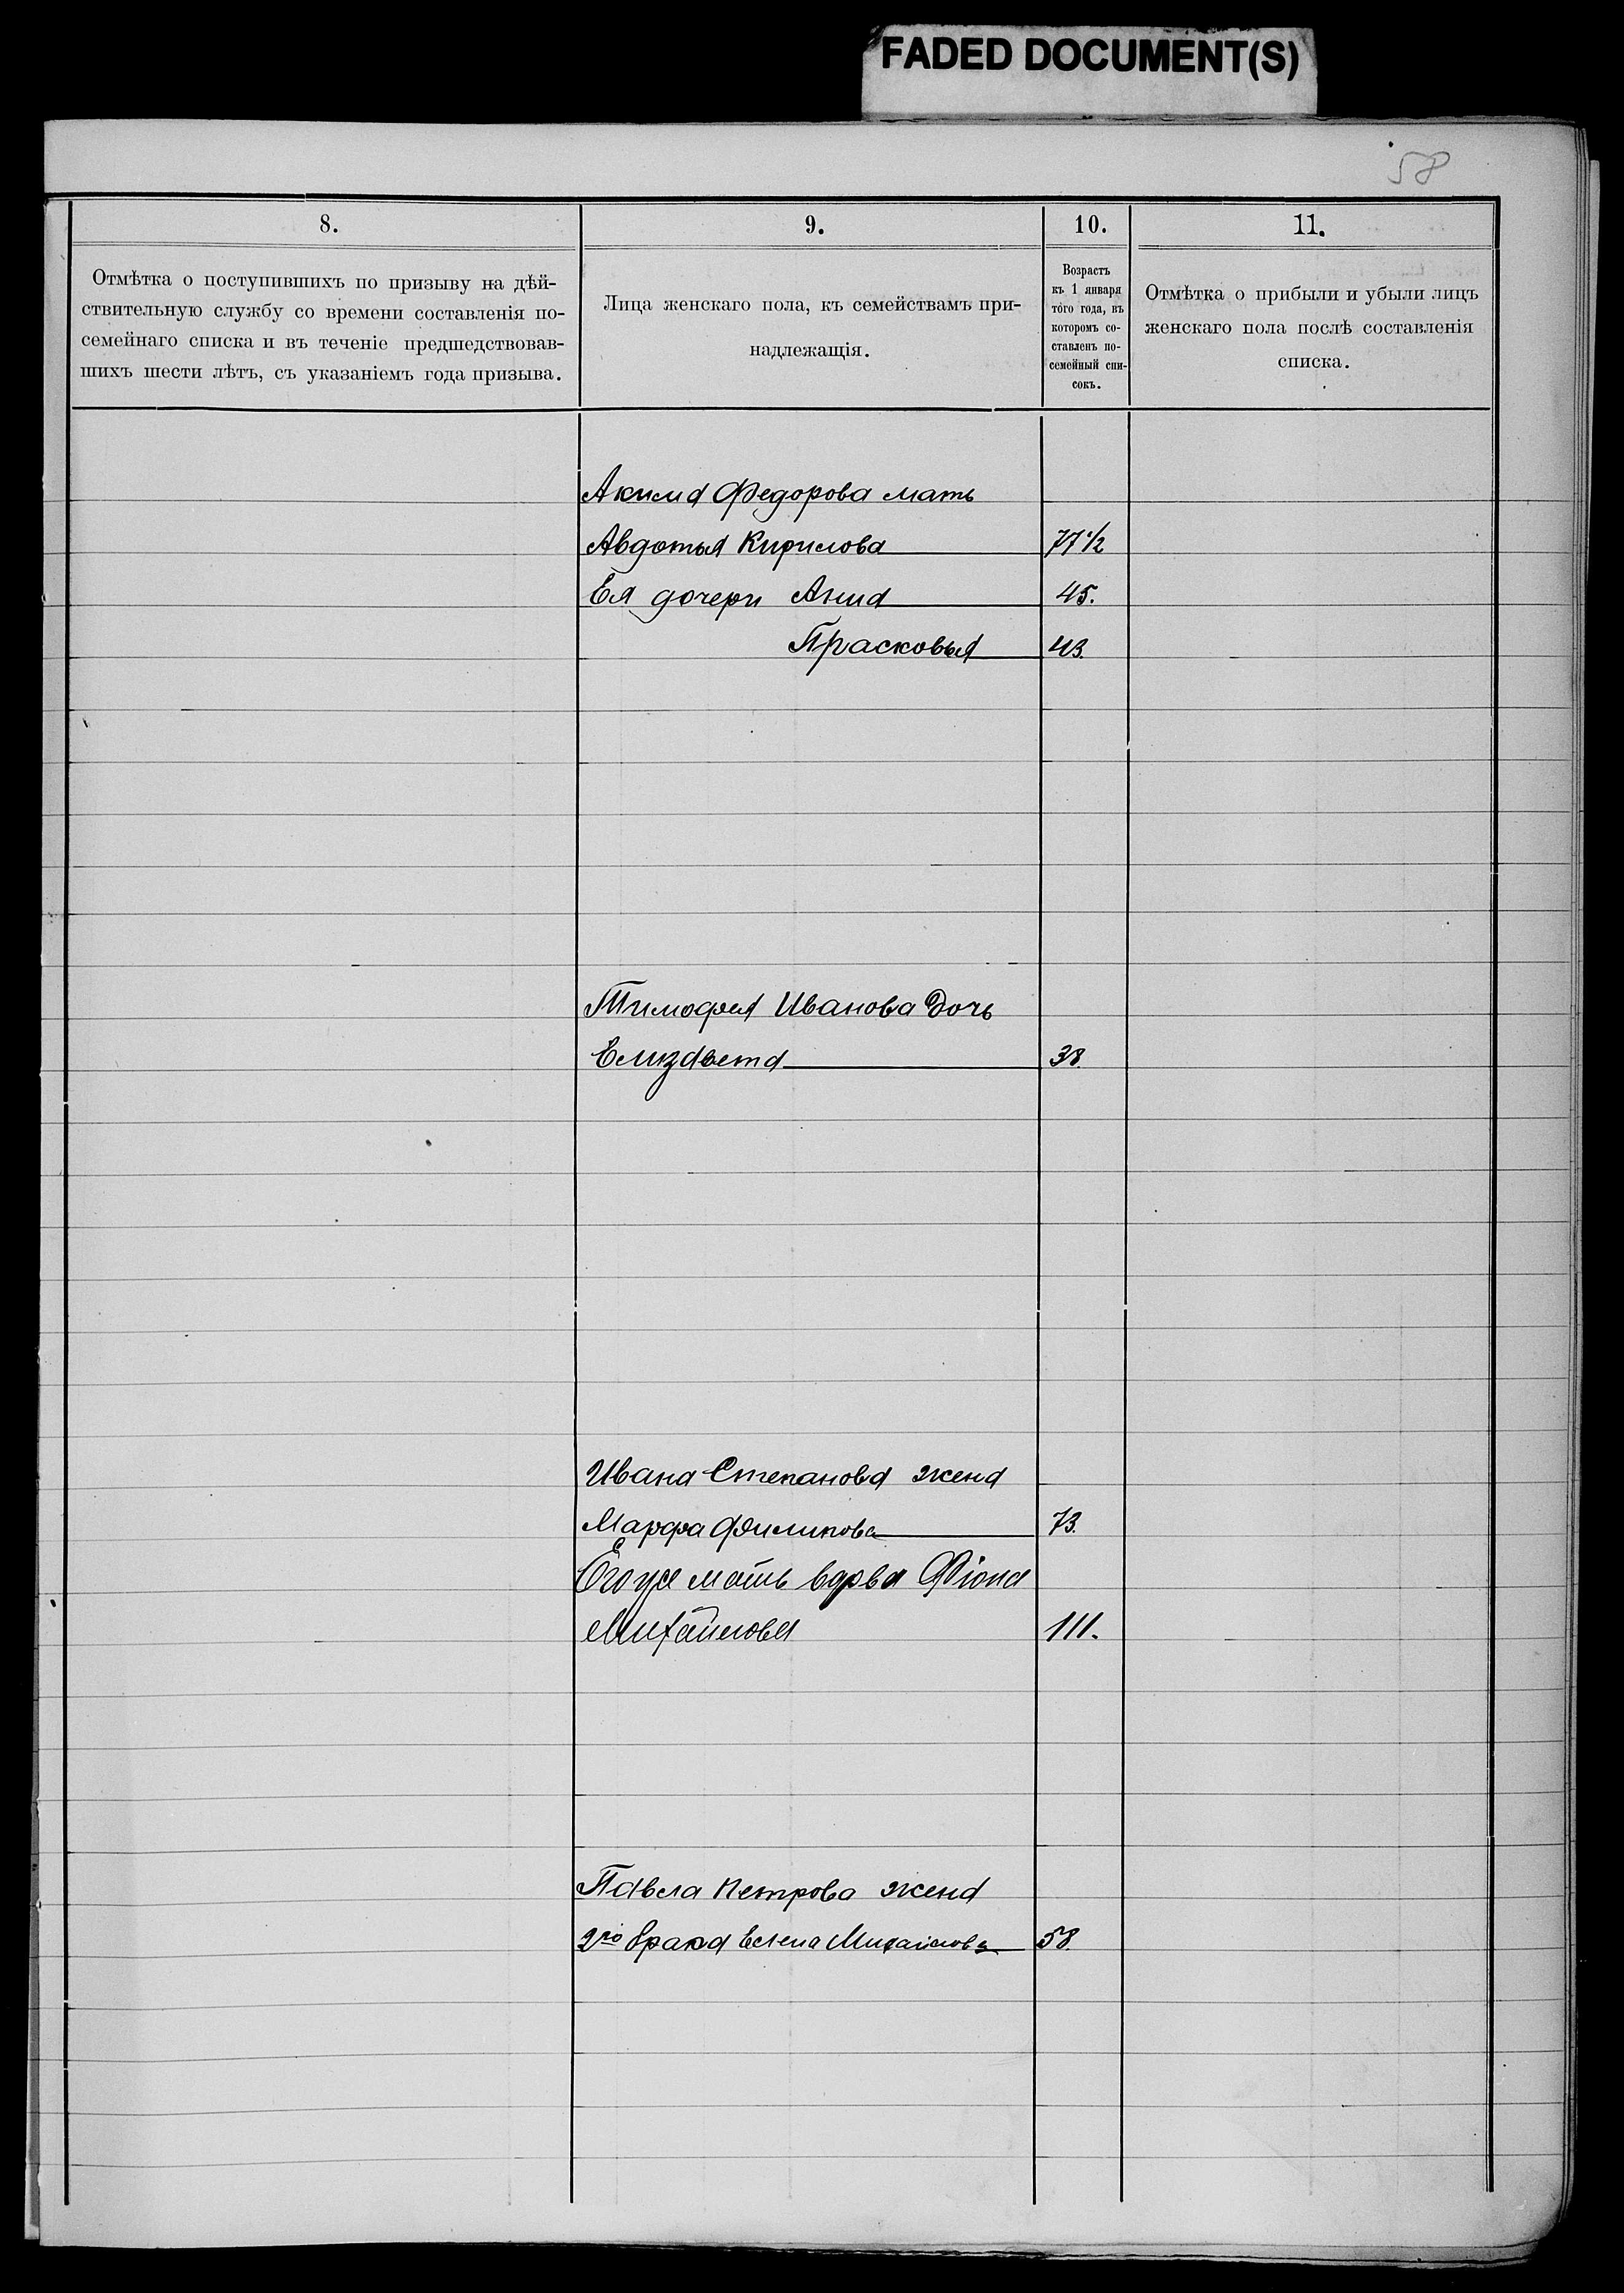 FADED DOCUMENT(S)
58
8.
9.
10.
11.
Отмѣтка о поступившихъ по призыву на дѣй-
ствительную службу со времени составленія по-
семейнаго списка и въ теченіе предшедствовав-
шихъ шести лѣтъ, съ указаніемъ года призыва.
Лица женскаго пола, къ семействамъ при-
надлежащія.
Возрастъ
къ 1 января
того года, въ
которомъ со-
ставленъ по-
семейный спи-
сокъ.
Отмѣтка о прибыли и убыли лицъ
женскаго пола послѣ составленія
списка.
Акима Федорова мать
Авдотья Кирилова 77 1/2
Ея дочери Анна 45.
Прасковья 43.
Тимофея Иванова дочь
Елизавета 38.
Ивана Степанова жена
Марфа Филипова 73.
Его же мать вдова Фіона
Михайлова 111.
Павла Петрова жена
2го брака Елена Михайлова 58.